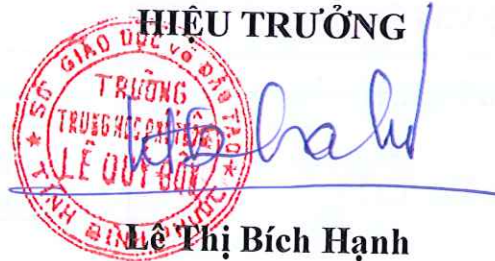 HIỆU TRƯỞNG
SỞ GIÁO DỤC VÀ ĐÀO TẠO
TRƯỜNG
TRUNG HỌC PHỔ THÔNG
LÊ QUÝ ĐÔN
Lê Thị Bích Hạnh